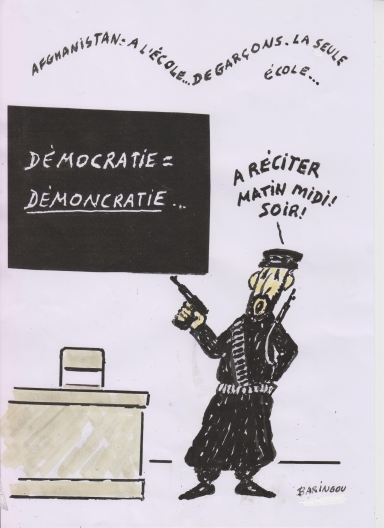 AFGHANISTAN.- A L'ÉCOLE... DE GARÇONS. LA SEULE
ÉCOLE...
DÉMOCRATIE =
DÉMONCRATIE...
A RÉCITER
MATIN MIDI!
SOIR!
BARINGOU